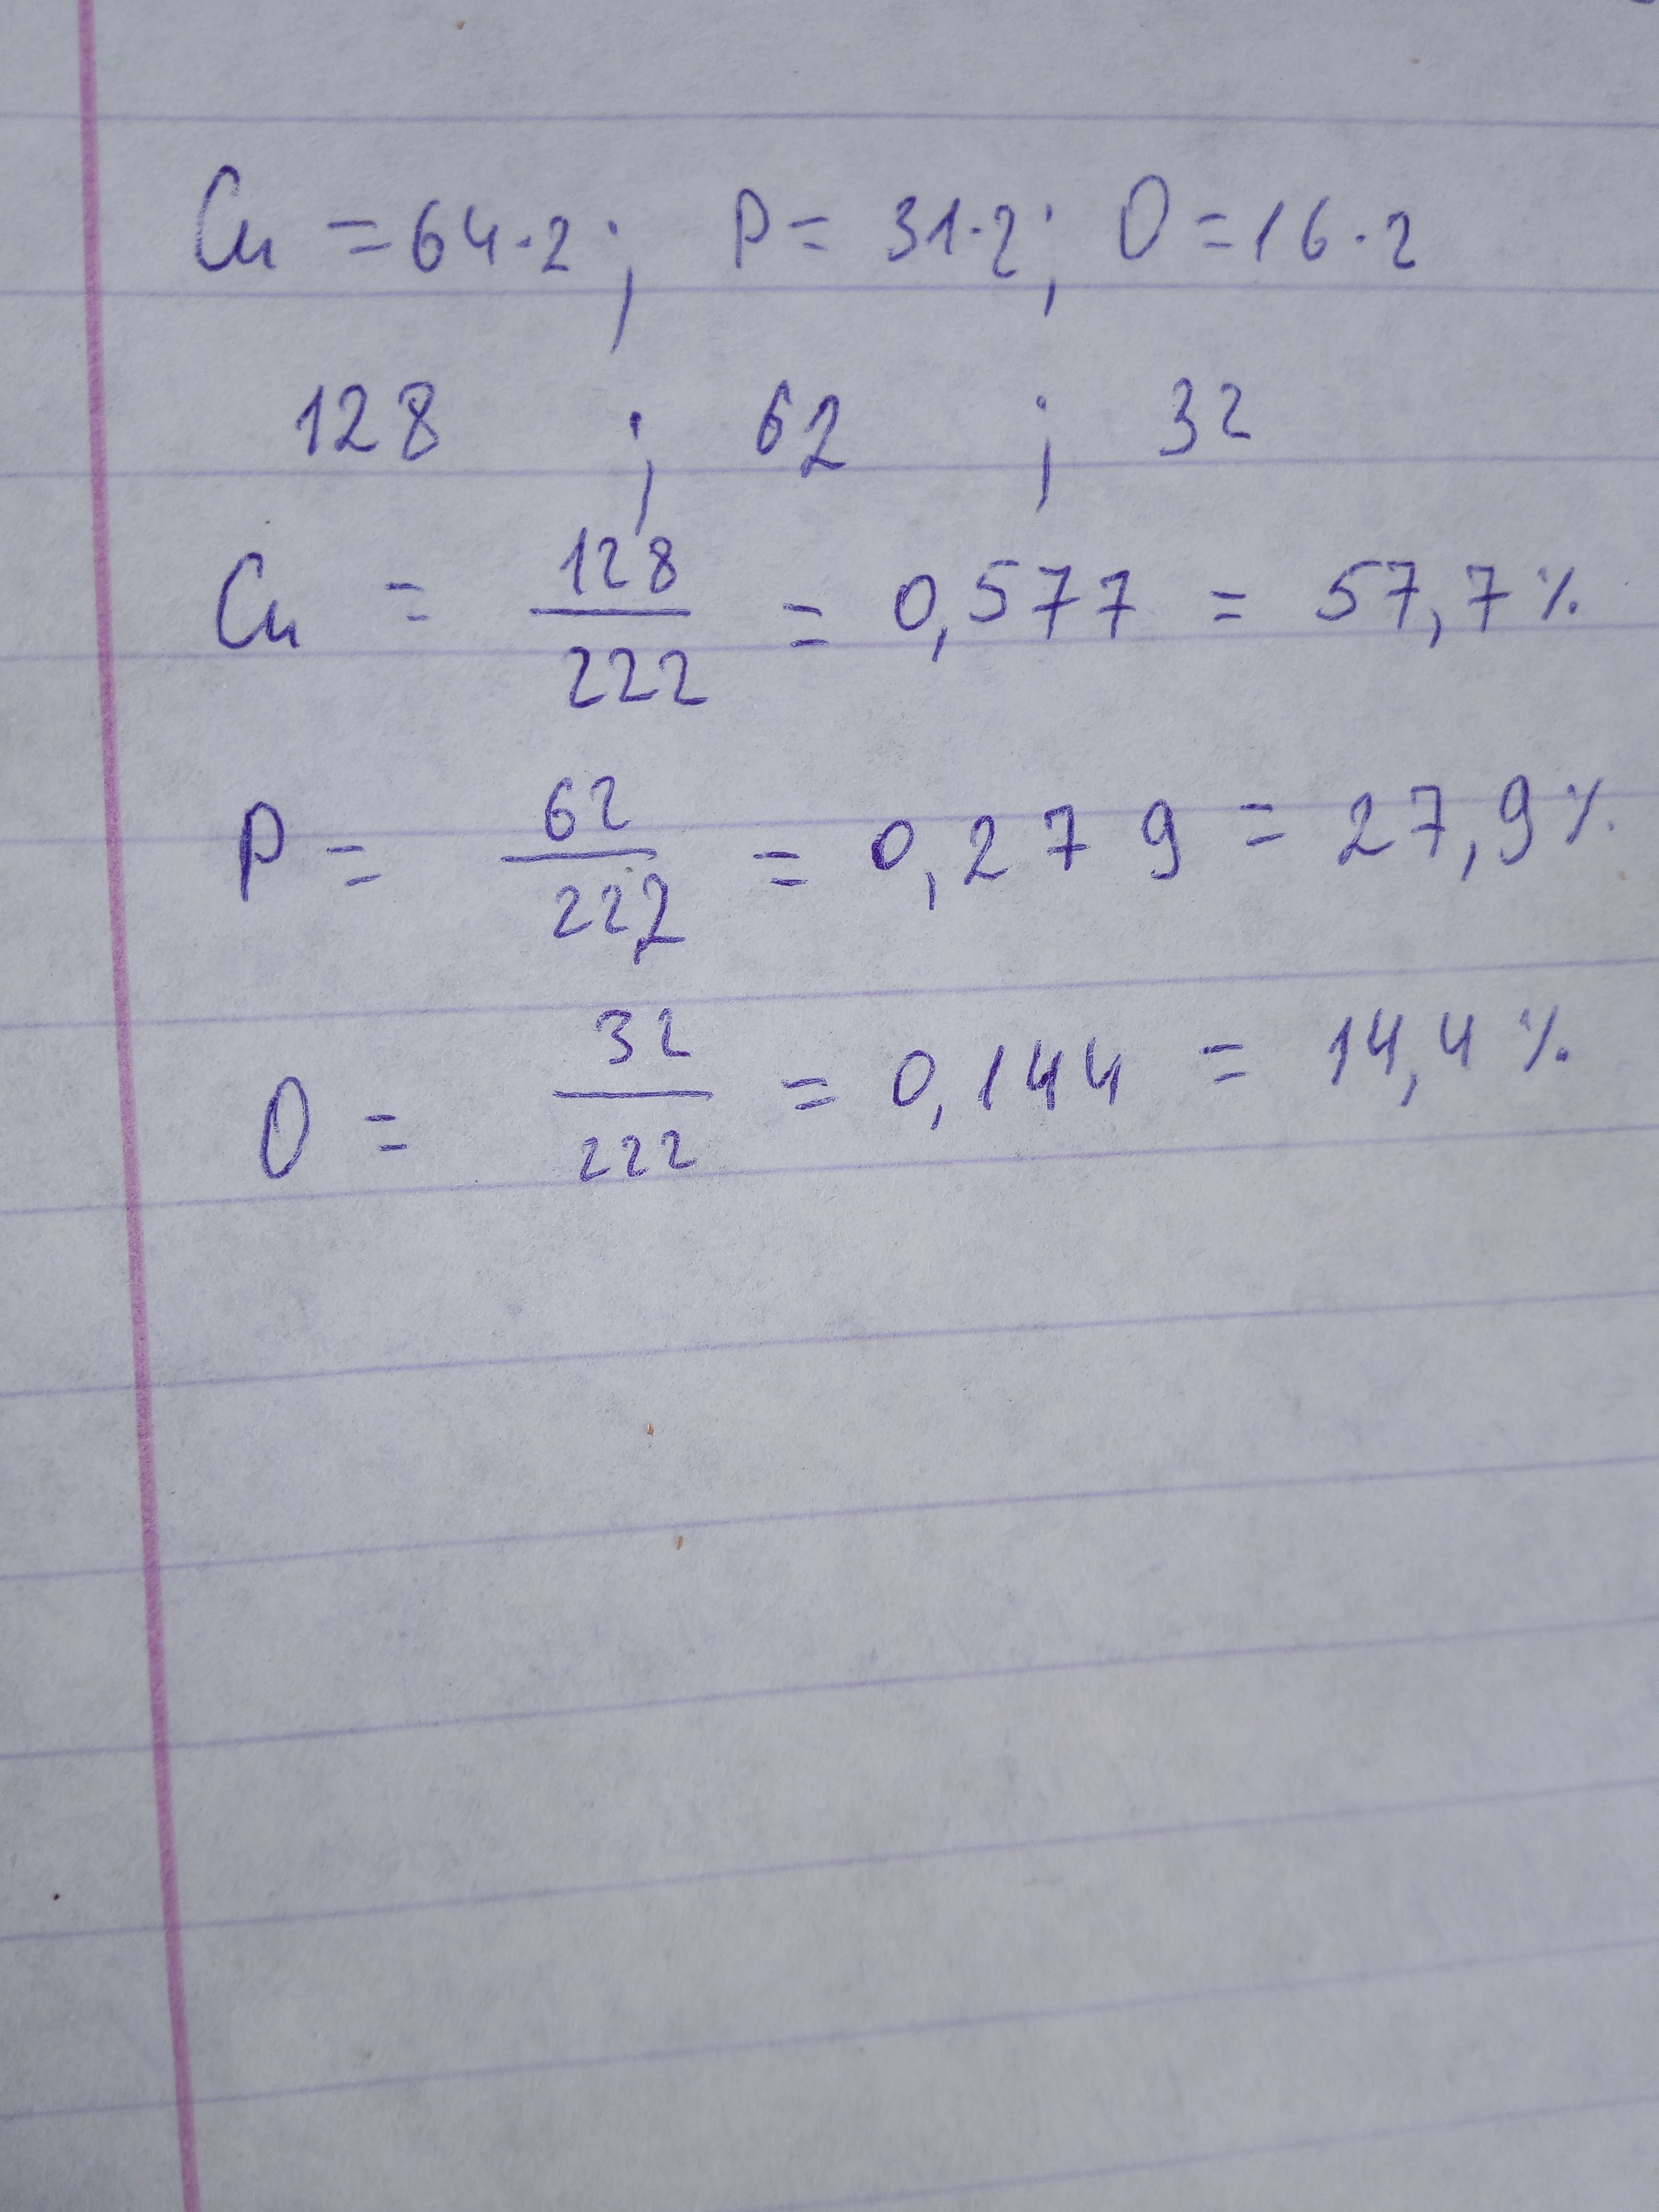 Cu = 64·2; P = 31·2; O = 16·2
128 ; 62 ; 32
Cu = 128/222 = 0,577 = 57,7%
P = 62/222 = 0,279 = 27,9%
O = 32/222 = 0,144 = 14,4%